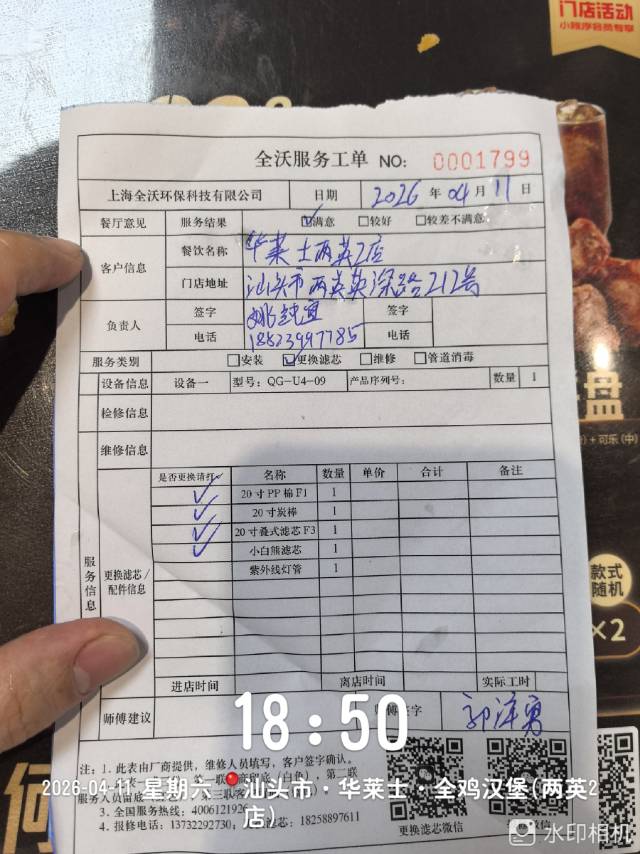 门店活动
小程序会员专享
全沃服务工单 NO: 0001799
上海全沃环保科技有限公司 日期 2026 年 04 月 11 日
餐厅意见 服务结果 ☑满意 □较好 □较差不满意
客户信息 餐饮名称 华莱士两英2店
门店地址 汕头市两英英深路212号
负责人 签字 签字
电话 18823997785 电话
服务类别 □安装 ☑更换滤芯 □维修 □管道消毒
设备信息 设备一 型号: QG-U4-09 产品序列号: 数量 1
检修信息
维修信息
服务信息 更换滤芯/配件信息
是否更换请打✓ 名称 数量 单价 合计 备注
✓ 20寸PP棉F1 1
✓ 20寸炭棒 1
✓ 20寸叠式滤芯F3 1
✓ 小白熊滤芯 1
紫外线灯管 1
进店时间 离店时间 实际工时
师傅建议 签字
注: 1. 此表由厂商提供, 维修人员填写, 客户签字确认。
第一联 (白色), 第二联
服务人员留底
3. 全国服务热线: 4006121926
4. 报修电话: 13732292730 滤芯: 18258897611
更换滤芯微信 微信
18:50
2026-04-11 星期六 汕头市·华莱士·全鸡汉堡(两英2店)
水印相机
盘
+可乐(中)
款式
随机
×2
何